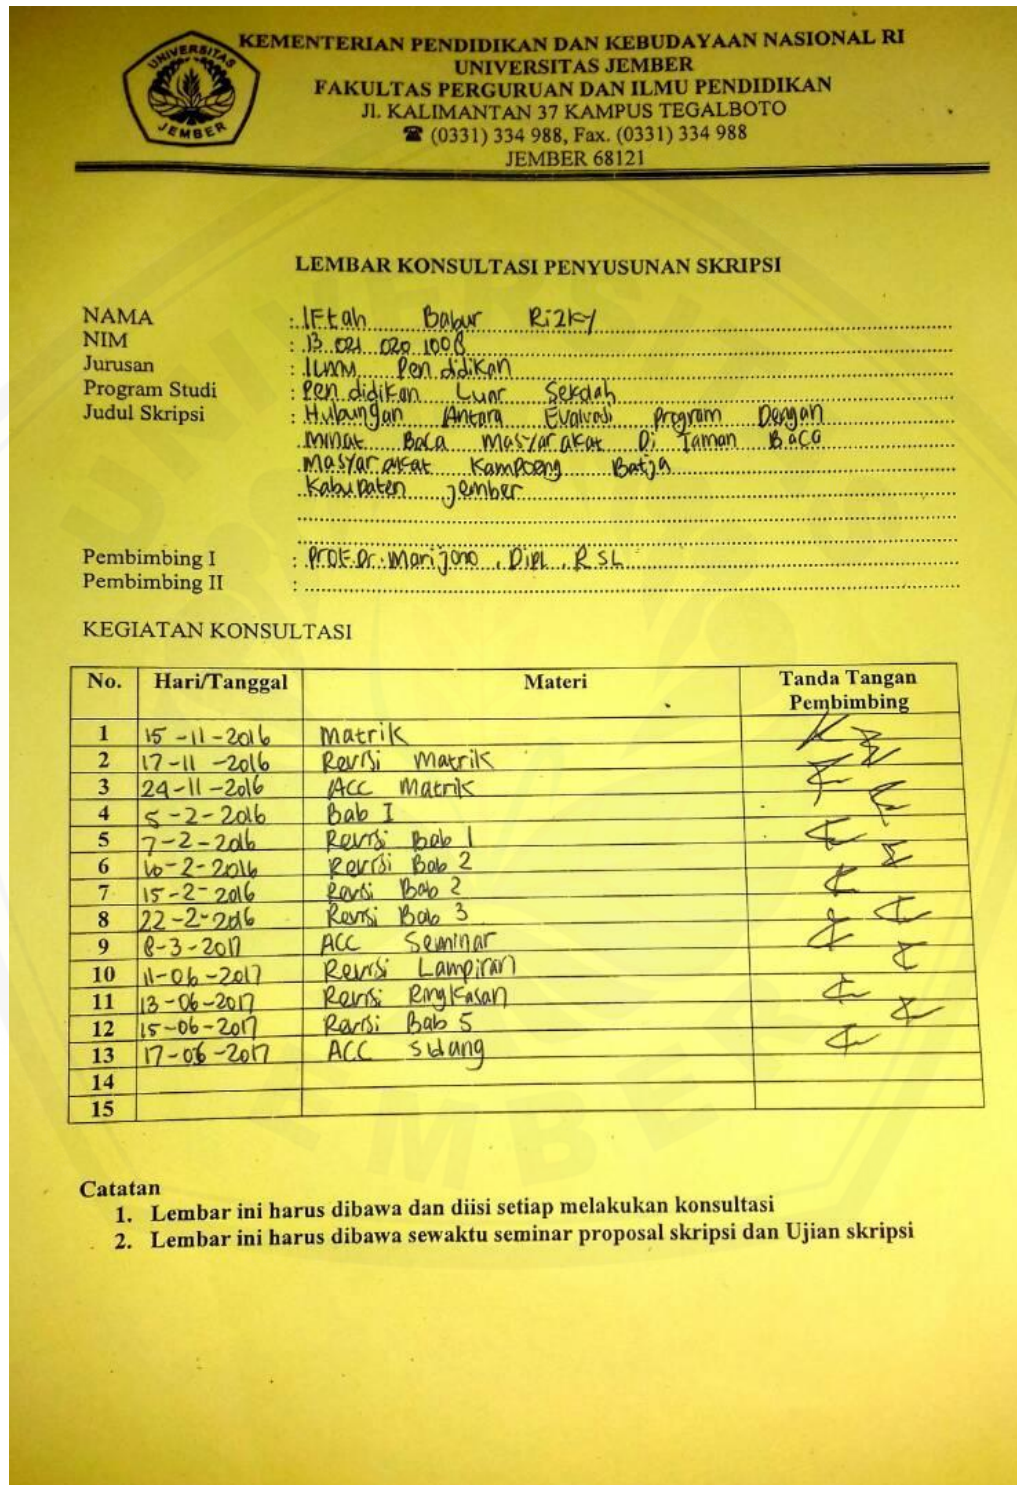 UNIVERSITAS
JEMBER
KEMENTERIAN PENDIDIKAN DAN KEBUDAYAAN NASIONAL RI
UNIVERSITAS JEMBER
FAKULTAS PERGURUAN DAN ILMU PENDIDIKAN
Jl. KALIMANTAN 37 KAMPUS TEGALBOTO
☎ (0331) 334 988, Fax. (0331) 334 988
JEMBER 68121
LEMBAR KONSULTASI PENYUSUNAN SKRIPSI
NAMA : Iftah Babur Rizky
NIM : 13 021 020 1008
Jurusan : Ilmu Pendidikan
Program Studi : Pendidikan Luar Sekolah
Judul Skripsi : Hubungan Antara Evaluasi Program Dengan
Minat Baca Masyarakat Di Taman Baca
Masyarakat Kampoeng Batja
Kabupaten Jember
Pembimbing I : Prof. Dr. Marijono, Dipl, RSL
Pembimbing II :
KEGIATAN KONSULTASI
No. Hari/Tanggal Materi Tanda Tangan
Pembimbing
1 15-11-2016 Matrik
2 17-11-2016 Revisi Matrik
3 24-11-2016 ACC Matrik
4 5-2-2016 Bab I
5 7-2-2016 Revisi Bab 1
6 10-2-2016 Revisi Bab 2
7 15-2-2016 Revisi Bab 2
8 22-2-2016 Revisi Bab 3
9 8-3-2017 ACC Seminar
10 11-06-2017 Revisi Lampiran
11 13-06-2017 Revisi Ringkasan
12 15-06-2017 Revisi Bab 5
13 17-06-2017 ACC Sidang
14
15
Catatan
1. Lembar ini harus dibawa dan diisi setiap melakukan konsultasi
2. Lembar ini harus dibawa sewaktu seminar proposal skripsi dan Ujian skripsi